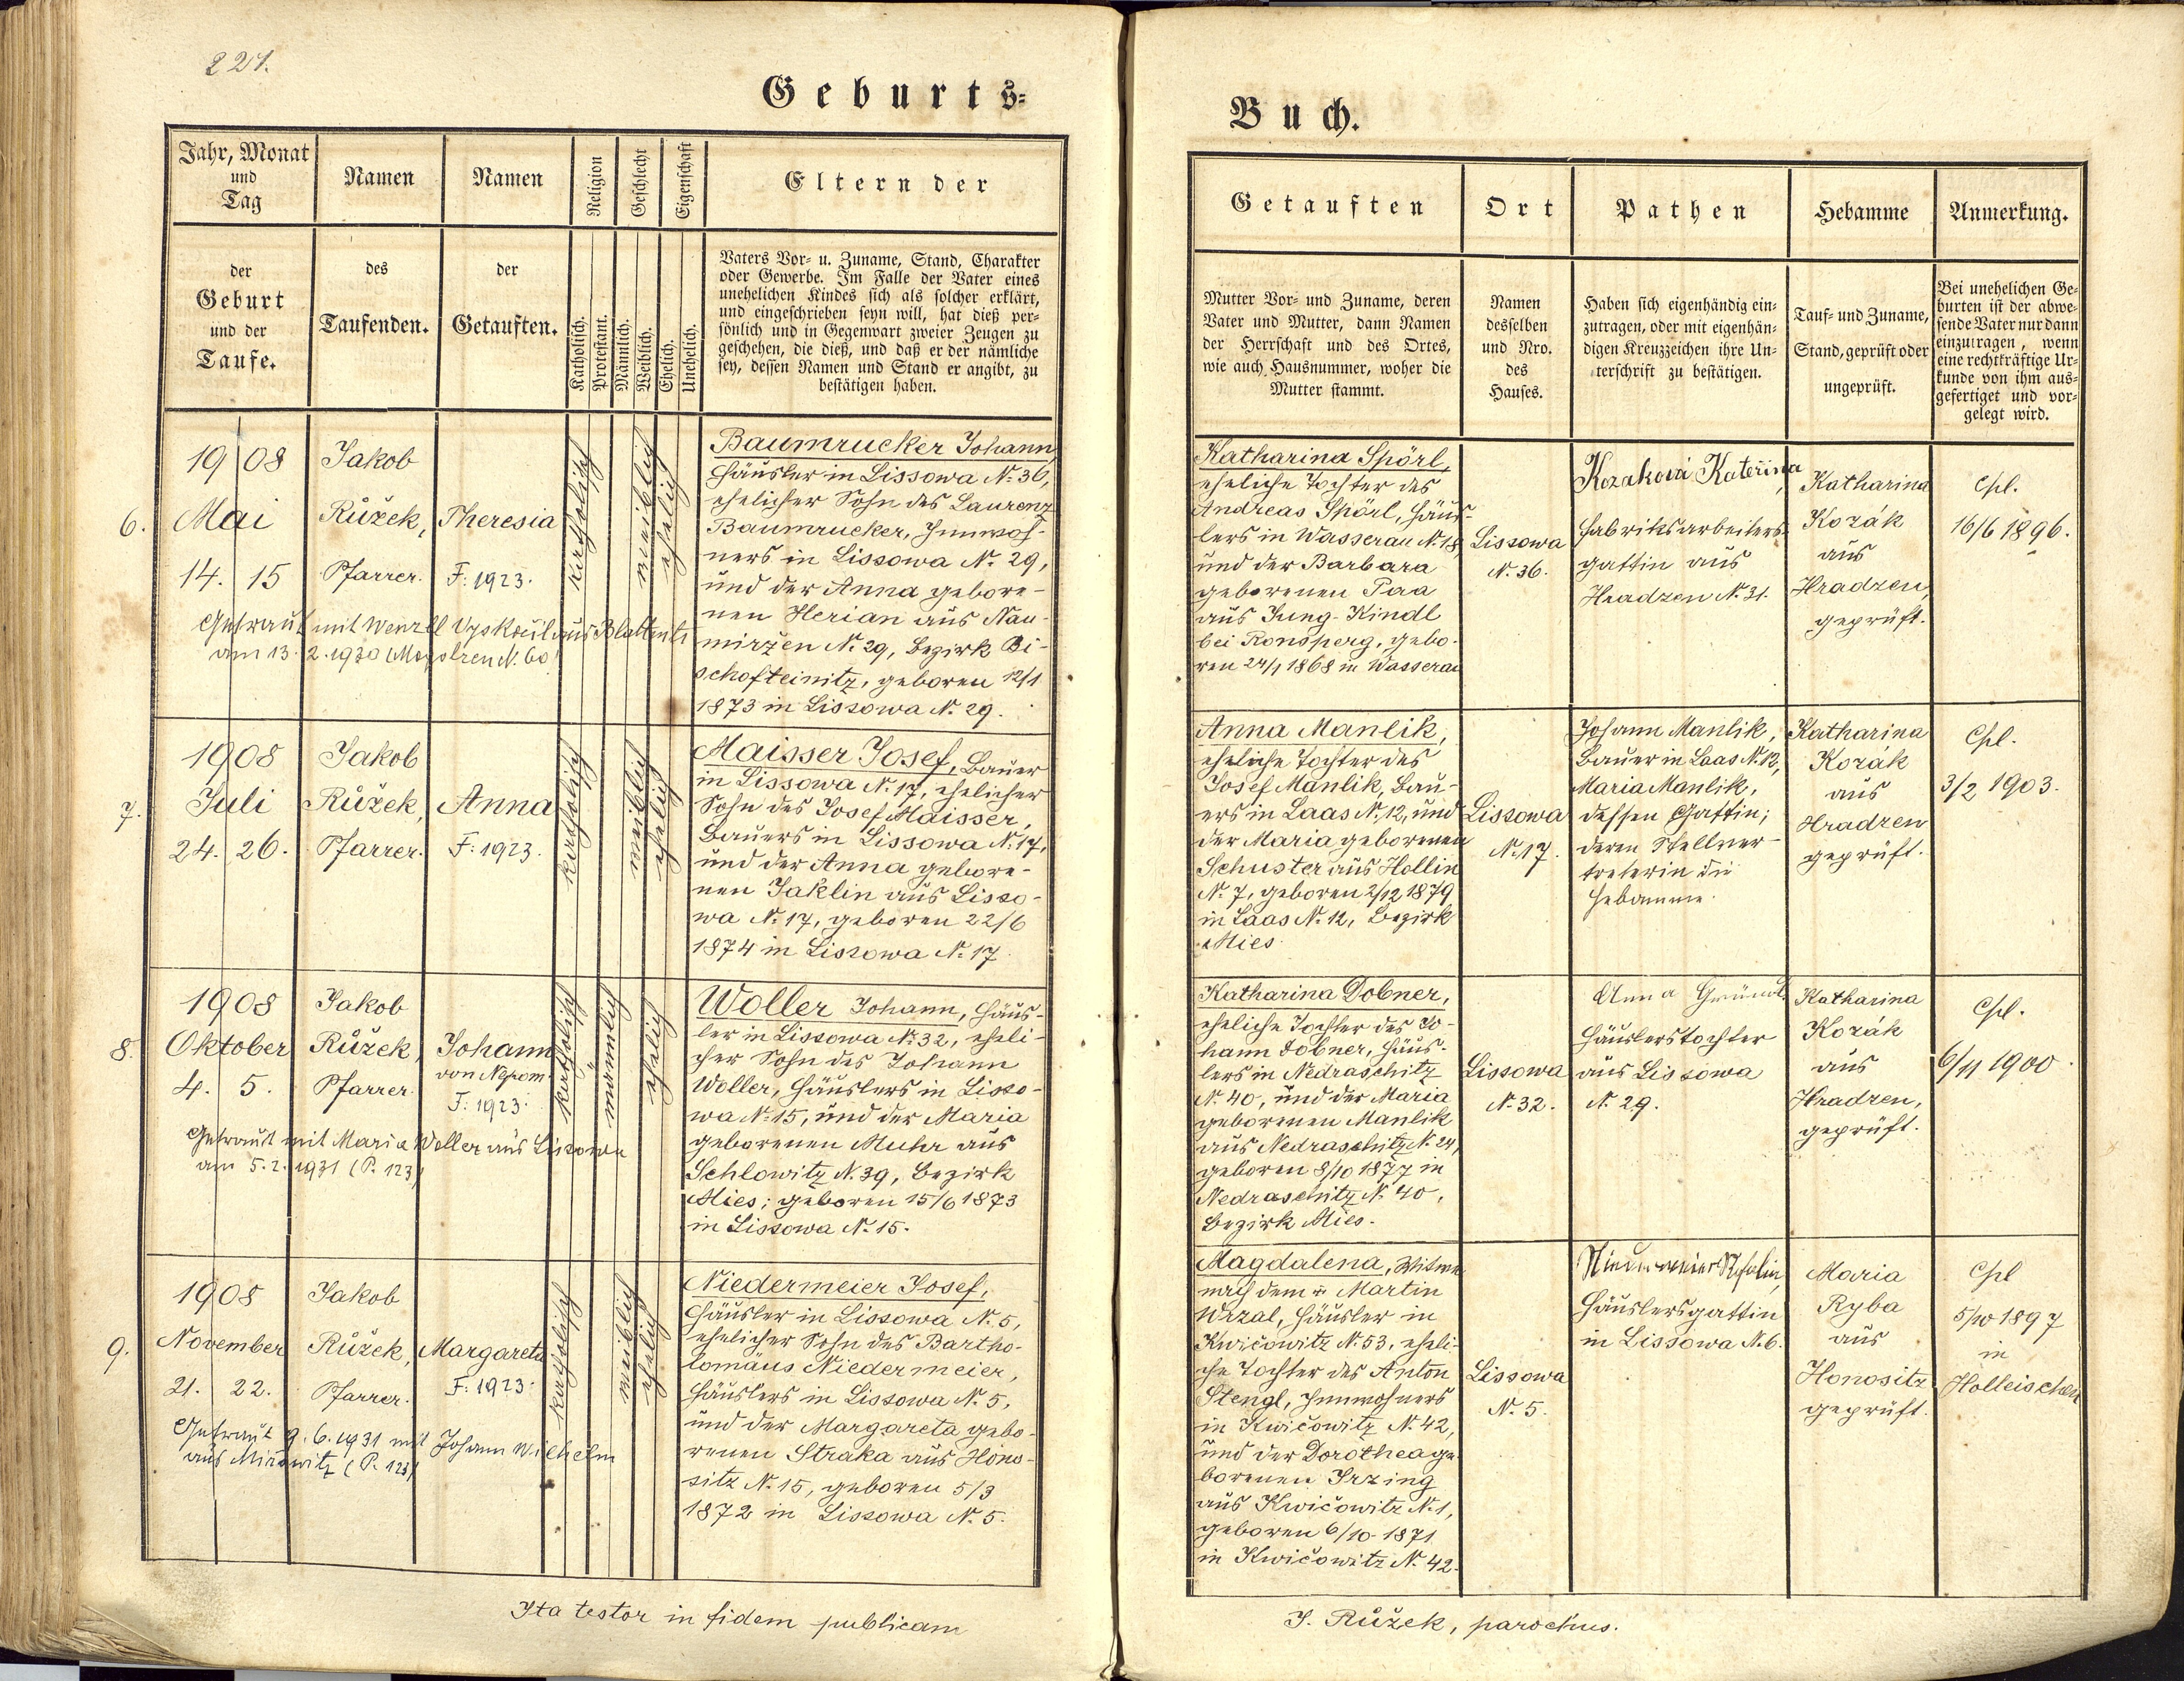 221.
Geburts-
Jahr, Monat
und
Tag
Namen
Namen
Religion
Geschlecht
Eigenschaft
Eltern der
der
Geburt
und der
Taufe.
des
Taufenden.
der
Getauften.
Katholisch.
Protestant.
Männlich.
Weiblich.
Ehelich.
Unehelich.
Vaters Vor- u. Zuname, Stand, Charakter
oder Gewerbe. Im Falle der Vater eines
unehelichen Kindes sich als solcher erklärt,
und eingeschrieben seyn will, hat dieß per-
sönlich und in Gegenwart zweier Zeugen zu
geschehen, die dieß, und daß er der nämliche
sey, dessen Namen und Stand er angibt, zu
bestätigen haben.
6.
1908
Mai
14. 15
Jakob
Růžek,
Pfarrer.
Theresia
F: 1923.
katholisch
weiblich
ehelich
Baumrucker Johann,
Häusler in Lissowa N. 36,
ehelicher Sohn des Laurenz
Baumrucker, Innwoh-
ners in Lissowa N. 29,
und der Anna gebore-
nen Herian aus Nau-
mirzen N. 29, Bezirk Bi-
schofteinitz, geboren 12/1
1873 in Lissowa N. 29.
Getraut mit Wenzl
am 13. 2. 1930
7.
1908
Juli
24. 26.
Jakob
Růžek,
Pfarrer.
Anna
F: 1923.
katholisch
weiblich
ehelich
Maisser Josef, Bauer
in Lissowa N. 17, ehelicher
Sohn des Josef Maisser,
Bauers in Lissowa N. 17,
und der Anna gebore-
nen Jaklin aus Lisso-
wa N. 17, geboren 22/6
1874 in Lissowa N. 17.
8.
1908
Oktober
4. 5.
Jakob
Růžek,
Pfarrer.
Johann
von Nepom.
F: 1923.
katholisch
männlich
ehelich
Woller Johann, Häus-
ler in Lissowa N. 32, eheli-
cher Sohn des Johann
Woller, Häuslers in Lisso-
wa N. 15, und der Maria
geborenen Muhr aus
Schlowitz N. 39, Bezirk
Mies; geboren 15/6 1873
in Lissowa N. 15.
Getraut mit Maria Woller aus Lissowa
am 5. 2. 1931 (P. 123)
9.
1908
November
21. 22.
Jakob
Růžek,
Pfarrer.
Margareta
F: 1923.
katholisch
weiblich
ehelich
Niedermeier Josef,
Häusler in Lissowa N. 5,
ehelicher Sohn des Bartho-
lomäus Niedermeier,
Häuslers in Lissowa N. 5,
und der Margareta gebo-
renen Straka aus Hono-
sitz N. 15, geboren 5/3
1872 in Lissowa N. 5.
Getraut 9. 6. 1931 mit Johann Wilhelm
aus Mirowitz (P. 123)
Ita testor in fidem publicam
Buch.
Getauften
Ort
Pathen
Hebamme
Anmerkung.
Mutter Vor- und Zuname, deren
Vater und Mutter, dann Namen
der Herrschaft und des Ortes,
wie auch Hausnummer, woher die
Mutter stammt.
Namen
desselben
und Nro.
des
Hauses.
Haben sich eigenhändig ein-
zutragen, oder mit eigenhän-
digen Kreuzzeichen ihre Un-
terschrift zu bestätigen.
Tauf- und Zuname,
Stand, geprüft oder
ungeprüft.
Bei unehelichen Ge-
burten ist der abwe-
sende Vater nur dann
einzutragen, wenn
eine rechtkräftige Ur-
kunde von ihm aus-
gefertiget und vor-
gelegt wird.
Katharina Spörl,
eheliche Tochter des
Andreas Spörl, Häus-
lers in Wasserau N. 18
und der Barbara
geborenen Paa
aus Jung-Kindl
bei Ronsperg, gebo-
ren 24/1 1868 in Wasserau
Lissowa
N. 36.
Kozaková Kateřina,
Fabriksarbeiters-
gattin aus
Hradzen N. 31.
Katharina
Kozák
aus
Hradzen,
geprüft.
Cpl.
16/6 1896.
Anna Manlik,
eheliche Tochter des
Josef Manlik, Bau-
ers in Laas N. 12, und
der Maria geborenen
Schuster aus Hollin
N. 7, geboren 2/12 1879
in Laas N. 12, Bezirk
Mies.
Lissowa
N. 17.
Johann Manlik,
Bauer in Laas N. 12,
Maria Manlik,
dessen Gattin;
deren Stellver-
treterin die
Hebamme.
Katharina
Kozák
aus
Hradzen
geprüft.
Cpl.
3/2 1903.
Katharina Dobner,
eheliche Tochter des Jo-
hann Dobner, Häus-
lers in Nedraschitz
N. 40, und der Maria
geborenen Manlik
aus Nedraschitz N. 24,
geboren 8/10 1877 in
Nedraschitz N. 40,
Bezirk Mies.
Lissowa
N. 32.
Anna
Häuslerstochter
aus Lissowa
N. 29.
Katharina
Kozák
aus
Hradzen,
geprüft.
Cpl.
6/11 1900.
Magdalena, Witwe
nach dem † Martin
Wrzal, Häusler in
Kwičowitz N. 53, eheli-
che Tochter des Anton
Stengl, Innwohners
in Kwičowitz N. 42,
und der Dorothea ge-
borenen Irzing
aus Kwičowitz N. 1,
geboren 6/10 1871
in Kwičowitz N. 42.
Lissowa
N. 5.
Häuslersgattin
in Lissowa N. 6.
Maria
Ryba
aus
Honositz
geprüft.
Cpl
5/10 1897
in
Holleischen
J. Růžek, parochus.